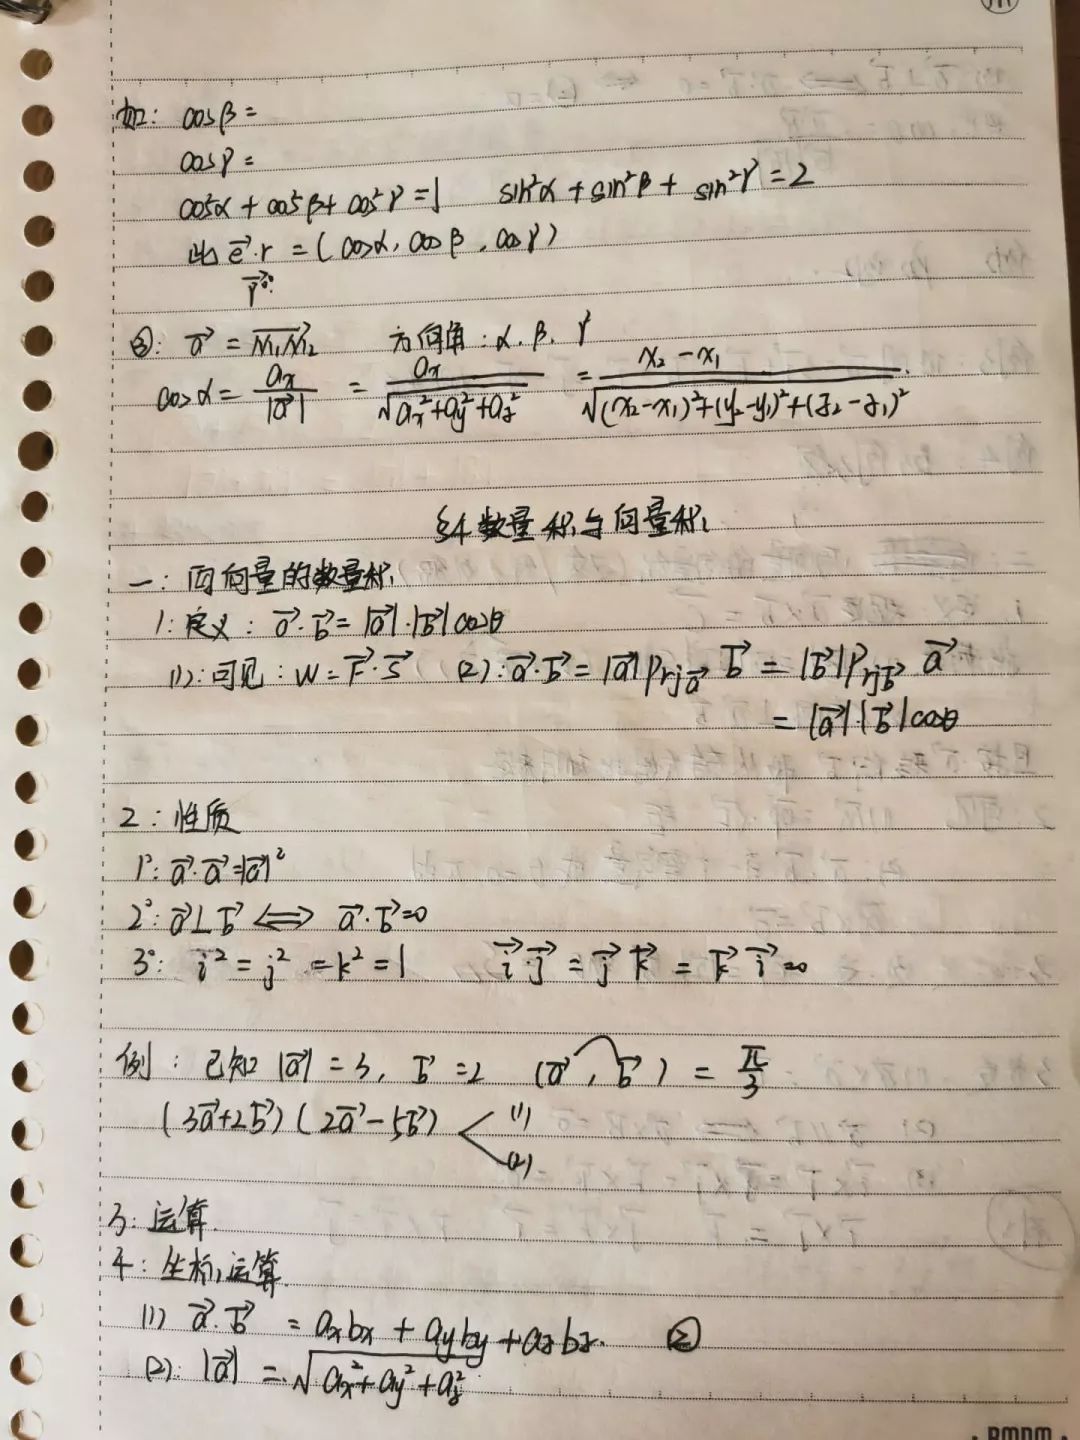 如: cosβ=
cosγ=
cos²α + cos²β + cos²γ = 1 sin²α + sin²β + sin²γ = 2
此 e⃗·r = (cosα, cosβ, cosγ)
r⃗°
③: a⃗ = M₁M₂ 方向角: α. β. γ
cosα = aₓ/|a⃗| = aₓ/√(aₓ²+a_y²+a_z²) = (x₂-x₁)/√((x₂-x₁)²+(y₂-y₁)²+(z₂-z₁)²)
§4 数量积与向量积
一: 两向量的数量积
1: 定义: a⃗·b⃗ = |a⃗|·|b⃗|cosθ
(1): 可见: W = F⃗·S⃗ (2): a⃗·b⃗ = |a⃗| Prj_a⃗ b⃗ = |b⃗| Prj_b⃗ a⃗
= |a⃗|·|b⃗|cosθ
2: 性质
1°: a⃗·a⃗ = |a⃗|²
2°: a⃗⊥b⃗ ⟺ a⃗·b⃗=0
3°: i² = j² = k² = 1 i⃗·j⃗ = j⃗ k⃗ = k⃗ i⃗ = 0
例: 已知 |a⃗| = 3, b⃗ = 2 (a⃗, b⃗) = π/3
(3a⃗+2b⃗)(2a⃗-5b⃗) (1)
(2)
3: 运算.
4: 坐标运算.
(1) a⃗·b⃗ = aₓbₓ + a_yb_y + a_zb_z. ②
(2): |a⃗| = √(aₓ²+a_y²+a_z²)